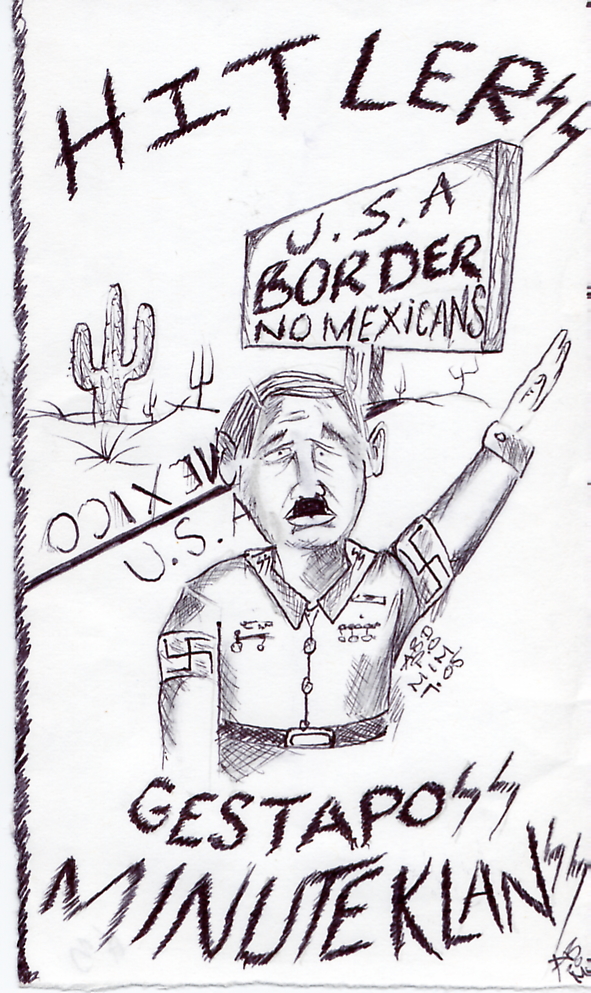 HITLER
U.S.A
BORDER
NO MEXICANS
MEXICO
U.S.A
GESTAPO
MINUTEKLAN